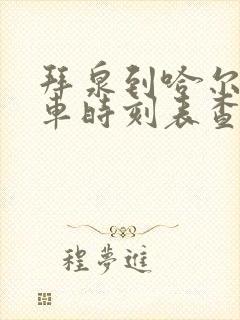 拜泉到哈尔
車時刻表查
程夢進